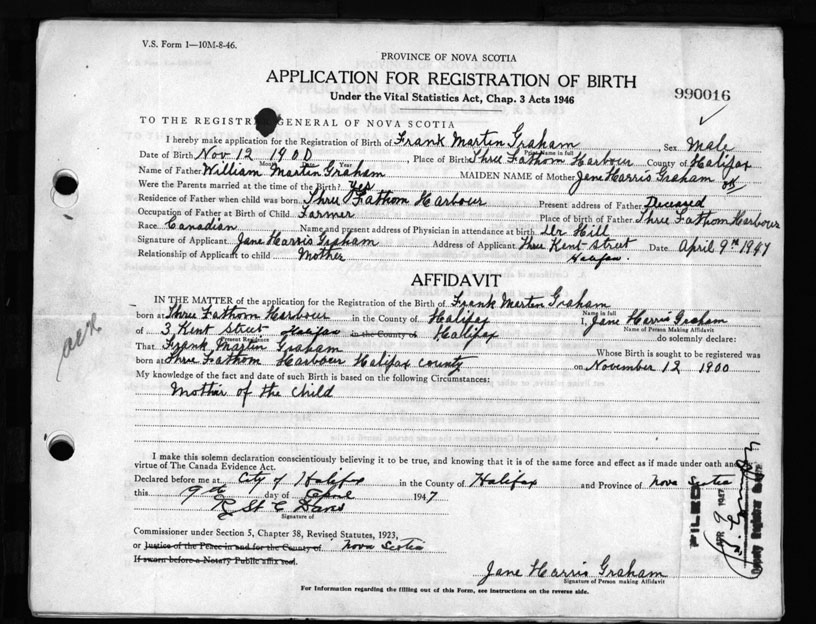 V.S. Form 1—10M-8-46.
PROVINCE OF NOVA SCOTIA
APPLICATION FOR REGISTRATION OF BIRTH
Under the Vital Statistics Act, Chap. 3 Acts 1946
990016
TO THE REGISTRAR GENERAL OF NOVA SCOTIA
I hereby make application for the Registration of Birth of Frank Martin Graham, Sex Male
Print Name in full
Date of Birth Nov 12 1900, Place of Birth Three Fathom Harbour County of Halifax
Month Date Year
Name of Father William Martin Graham MAIDEN NAME of Mother Jane Harris Graham
Were the Parents married at the time of the Birth? Yes
Residence of Father when child was born Three Fathom Harbour Present address of Father Deceased
Occupation of Father at Birth of Child Farmer Place of birth of Father Three Fathom Harbour
Race Canadian Name and present address of Physician in attendance at birth Dr Hill
Signature of Applicant Jane Harris Graham Address of Applicant Three Kent-Street Date April 9th 1947
Relationship of Applicant to child Mother Halifax.
AFFIDAVIT
IN THE MATTER of the application for the Registration of the Birth of Frank Martin Graham
Name in full
born at Three Fathom Harbour in the County of Halifax I, Jane Harris Graham
Name of Person Making Affidavit
of 3 Kent Street Halifax in the County of Halifax do solemnly declare:
Present Residence
That Frank Martin Graham Whose Birth is sought to be registered was
born at Three Fathom Harbour Halifax County on November 12 1900
My knowledge of the fact and date of such Birth is based on the following Circumstances:
Mother of the Child
I make this solemn declaration conscientiously believing it to be true, and knowing that it is of the same force and effect as if made under oath and
virtue of The Canada Evidence Act.
Declared before me at City of Halifax in the County of Halifax and Province of Nova Scotia
this 9th day of April 1947
R St C Davis
Signature of
Commissioner under Section 5, Chapter 38, Revised Statutes, 1923,
or Justice of the Peace in and for the County of Nova Scotia
If sworn before a Notary Public affix seal.
Jane Harris Graham
Signature of Person making Affidavit
For Information regarding the filling out of this Form, see instructions on the reverse side.
FILED
APR 9 1947
Deputy Registrar